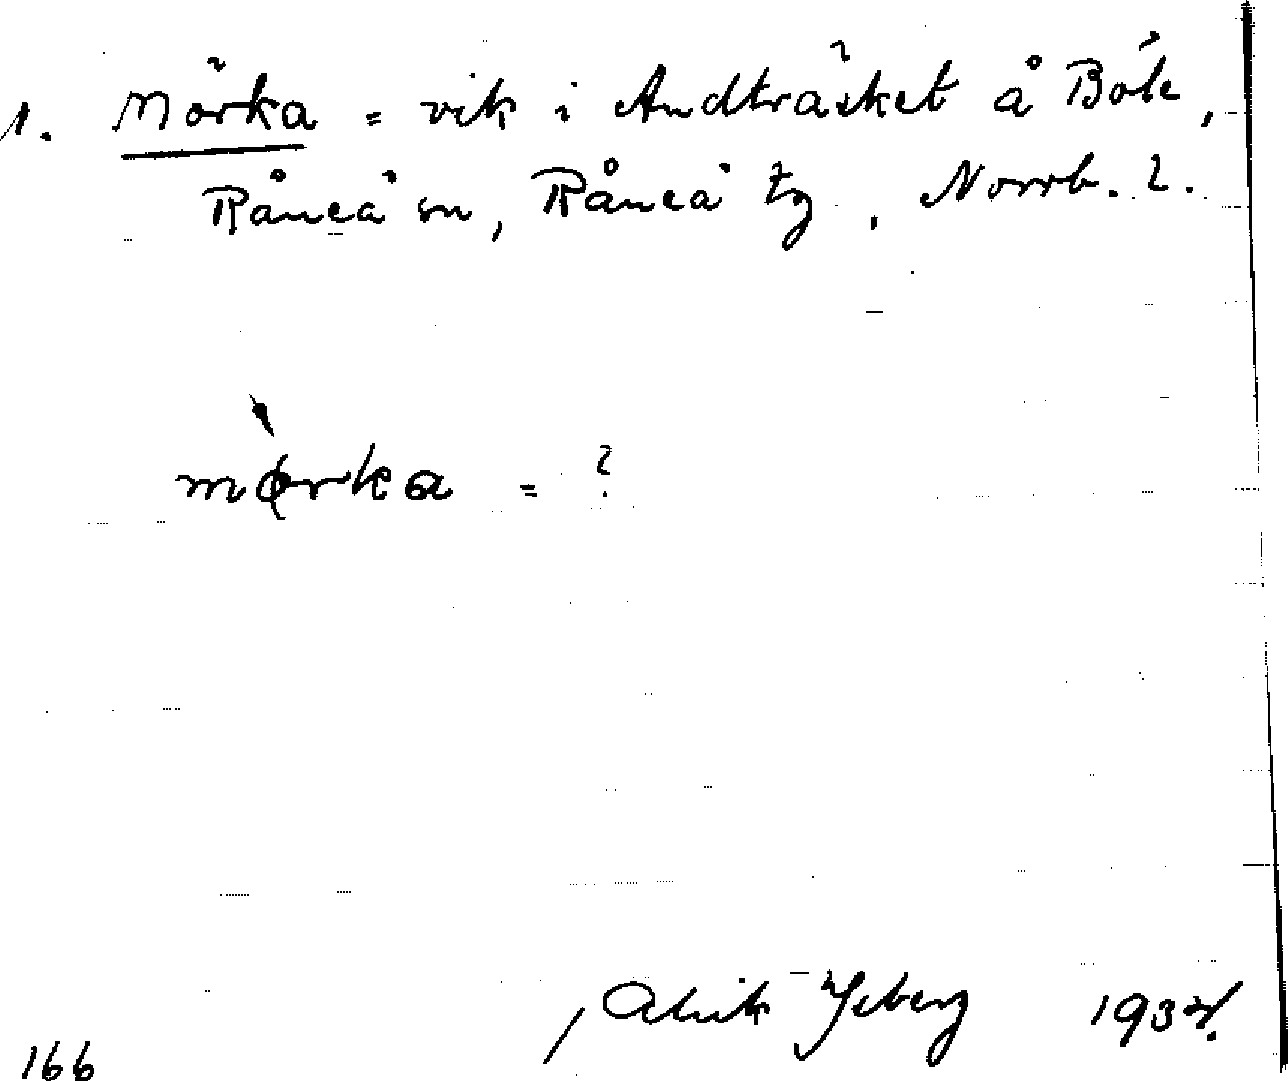 1. Mörka = vik i Andträsket å Böle,
Råneå sn, Råneå tg, Norrb. l.
mörka = ?
Alrik Ysberg
166